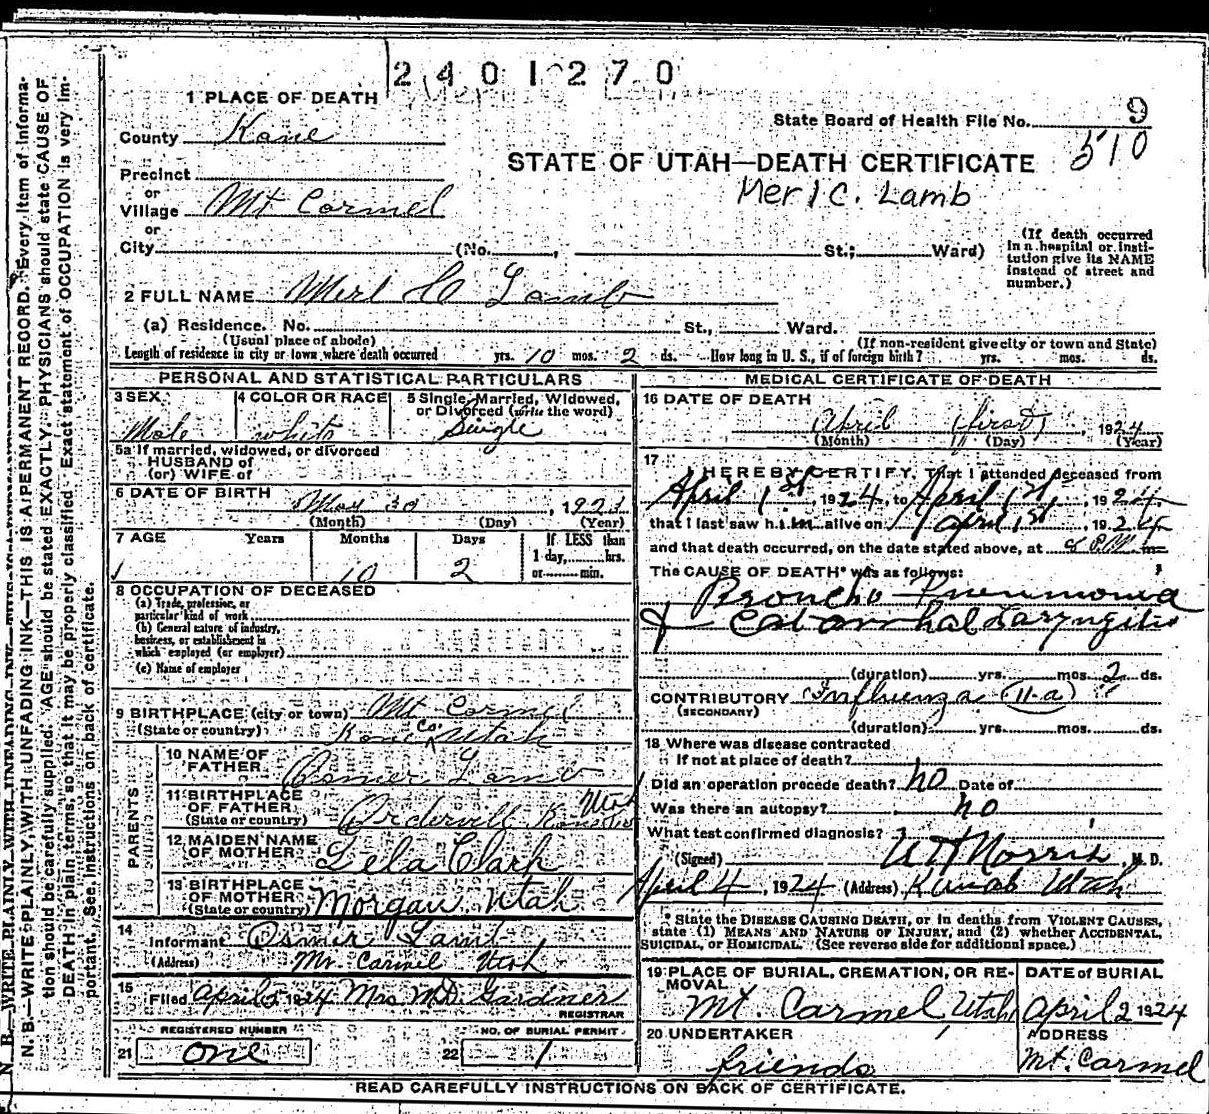 2401270
1 PLACE OF DEATH
State Board of Health File No. 9
510
County Kane
STATE OF UTAH—DEATH CERTIFICATE
Precinct
Merl C. Lamb
or
Village Mt Carmel
or
City (No. , St.; Ward)
(If death occurred in a hospital or institution give its NAME instead of street and number.)
2 FULL NAME Merl C Lamb
(a) Residence. No. St., Ward.
(Usual place of abode) (If non-resident give city or town and State)
Length of residence in city or town where death occurred yrs. 10 mos. 2 ds. How long in U. S., if of foreign birth? yrs. mos. ds.
PERSONAL AND STATISTICAL PARTICULARS
3 SEX Male
4 COLOR OR RACE white
5 Single, Married, Widowed, or Divorced (write the word) Single
5a If married, widowed, or divorced
HUSBAND of
(or) WIFE of
6 DATE OF BIRTH May 30, 1923
(Month) (Day) (Year)
7 AGE Years Months Days If LESS than
1 day, hrs.
10 2 or min.
8 OCCUPATION OF DECEASED
(a) Trade, profession, or
particular kind of work
(b) General nature of industry,
business, or establishment in
which employed (or employer)
(c) Name of employer
9 BIRTHPLACE (city or town) Mt Carmel
(State or country) Kane Co Utah
PARENTS
10 NAME OF FATHER Osmer Lamb
11 BIRTHPLACE OF FATHER (State or country) Orderville Kane Co Utah
12 MAIDEN NAME OF MOTHER Lela Clark
13 BIRTHPLACE OF MOTHER (State or country) Morgan, Utah
14 Informant Osmer Lamb
(Address) Mt. Carmel Utah
15 Filed April 1924 Mrs M D Gardner
REGISTRAR
REGISTERED NUMBER NO. OF BURIAL PERMIT
21 one 22 1
MEDICAL CERTIFICATE OF DEATH
16 DATE OF DEATH
April first, 1924
(Month) (Day) (Year)
17 I HEREBY CERTIFY, That I attended deceased from
April 1st, 1924, to April 1st, 1924
that I last saw him alive on April 1st, 1924
and that death occurred, on the date stated above, at 8 P.M. m
The CAUSE OF DEATH* was as follows:
Broncho-Pneumonia
& Catarrhal Laryngitis
(duration) yrs. mos. 2 ds.
CONTRIBUTORY Influenza 11-a
(SECONDARY)
(duration) yrs. mos. ds.
18 Where was disease contracted
if not at place of death?
Did an operation precede death? no Date of
Was there an autopsy? no
What test confirmed diagnosis?
(Signed) Norris, M. D.
April 4, 1924 (Address) Kanab Utah
* State the DISEASE CAUSING DEATH, or in deaths from VIOLENT CAUSES,
state (1) MEANS AND NATURE OF INJURY, and (2) whether ACCIDENTAL,
SUICIDAL, or HOMICIDAL. (See reverse side for additional space.)
19 PLACE OF BURIAL, CREMATION, OR REMOVAL DATE of BURIAL
Mt. Carmel, Utah April 2 1924
20 UNDERTAKER ADDRESS
friends Mt. Carmel
READ CAREFULLY INSTRUCTIONS ON BACK OF CERTIFICATE.
N. B.—WRITE PLAINLY, WITH UNFADING INK—THIS IS A PERMANENT RECORD. Every item of information should be carefully supplied. AGE should be stated EXACTLY. PHYSICIANS should state CAUSE OF DEATH in plain terms, so that it may be properly classified. Exact statement of OCCUPATION is very important. See instructions on back of certificate.